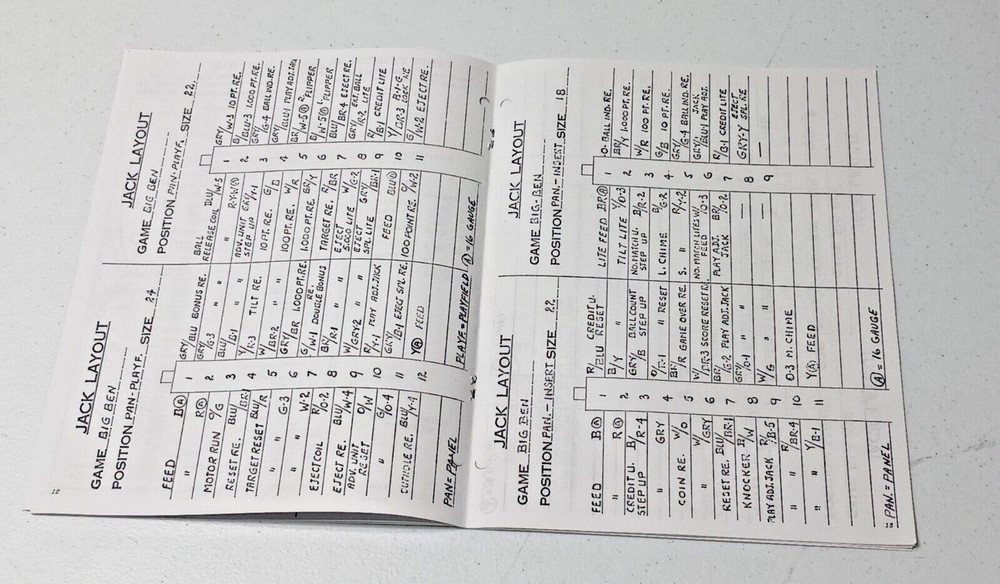 JACK LAYOUT
GAME BIG BEN
POSITION PAN-PLAYF. SIZE 24
FEED B Ⓐ 1 GRY/BLU BONUS RE.
" R Ⓐ 2 GRY/G-3 " "
MOTOR RUN O/G 3 BLU/B-1 " "
RESET RE. BLU/BR-1 4 Y/R-3 TILT RE.
TARGET RESET BLU/R 5 W/BR-2 " "
" " G-3 6 GRY/BR 1,000 PT. RE.
" " W-2 7 G/W-1 DOUBLE BONUS RE.
EJECT COIL R/O-2 8 BR/R-1 " "
EJECT RE. BLU/W-4 9 W/GRY-2 " "
ADV. UNIT RESET O/W 10 R/Y-1 PLAY ADJ. JACK
" " G/O-4 11 GRY/B-1 EJECT SPL. RE.
OUTHOLE RE. BLU/Y-4 12 Y Ⓐ FEED
PAN = PANEL PLAYF. = PLAYFIELD Ⓐ = 16 GAUGE
12
JACK LAYOUT
GAME BIG BEN
POSITION PAN-PLAYF. SIZE 22
BALL RELEASE COIL BLU/W-5 1 GRY/W-3 10 PT. RE.
" R-Y-W Ⓐ 2 B/BLU-3 1,000 PT. RE.
ADV. UNIT STEP UP GRY/Y-1 3 G-4 BALL IND. RE.
10 PT. RE. G/B 4 GRY/BLU-1 PLAY ADJ. JACK
100 PT. RE. W/R 5 BR/W-5 Ⓐ R. FLIPPER
1,000 PT. RE. BR/Y 6 B/W-5 Ⓐ L. FLIPPER
TARGET RE. R/BR 7 BLU/BR-4 EJECT RE.
EJECT 5,000 LITE W/G-2 8 GRY/R-2 EXT. BALL LITE
EJECT SPL. LITE GRY/BR-1 9 R/B-1 CREDIT LITE
FEED BLU Ⓐ 10
100 POINT RE. O/W-2 11 G/W-2 EJECT RE.
JACK LAYOUT
GAME BIG BEN
POSITION PAN.-INSERT SIZE 22
FEED B Ⓐ 1 R/BLU CREDIT U. RESET
" R Ⓐ 2 B/Y " "
CREDIT U. STEP UP B/R-4 3 GRY/B BALL COUNT STEP UP
" GRY 4 O/R-1 " RESET
COIN RE. W/O 5 BR/R GAME OVER RE.
" W/GRY 6 W/BR-3 SCORE RESET RE.
RESET RE. BLU/BR-1 7 BR/G-2 PLAY ADJ. JACK
KNOCKER B/W 8 GRY/O-1 " "
PLAY ADJ. JACK R/B-5 9 W/G " "
" " R/BR-4 10 O-3 M. CHIME
" " Y/B-1 11 Y Ⓐ FEED
PAN. = PANEL Ⓐ = 16 GAUGE
JACK LAYOUT
GAME BIG-BEN
POSITION PAN.-INSERT SIZE 18
LITE FEED BR Ⓐ 1 O- BALL IND. RE.
TILT LITE Y/O-3 2 BR/Y 1,000 PT. RE.
NO. MATCH U. STEP UP B/R-2 3 W/R 100 PT. RE.
L. CHIME B/G-2 4 G/B 10 PT. RE.
S. " R/Y-2 5 GRY/G-4 BALL IND. RE.
NO. MATCH LITES FEED W/O-3 6 GRY/BLU-1 JACK PLAY ADJ.
PLAY ADJ. JACK BR/O-2 7 R/B-1 CREDIT LITE
— — 8 GRY-Y EJECT SPL. RE
— — 9 —